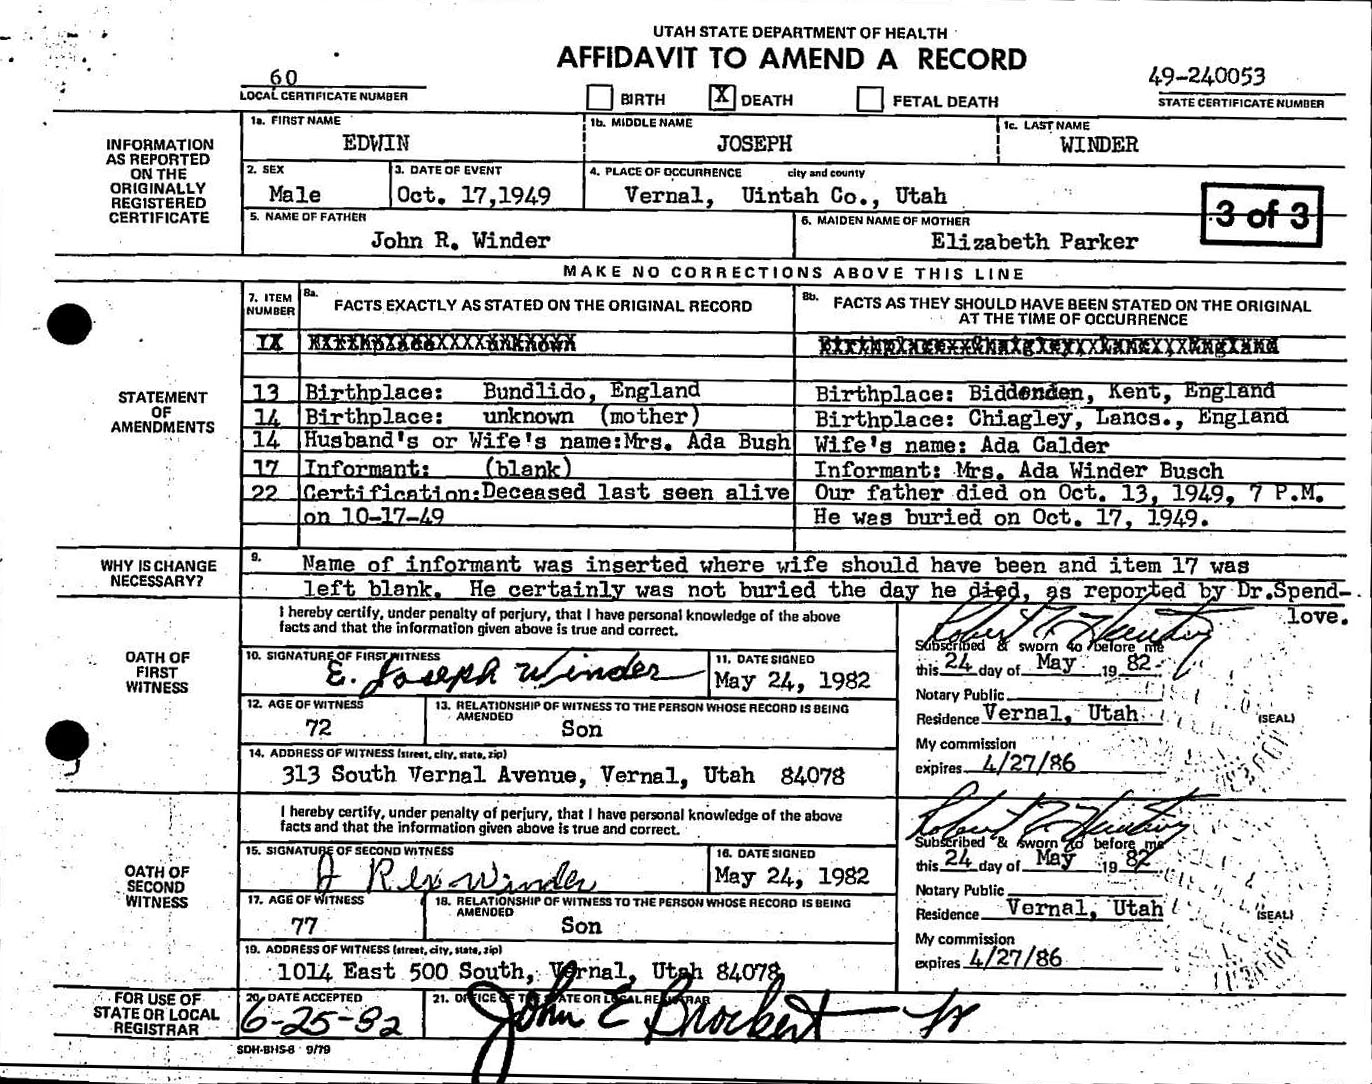 UTAH STATE DEPARTMENT OF HEALTH
AFFIDAVIT TO AMEND A RECORD
60
LOCAL CERTIFICATE NUMBER
BIRTH X DEATH FETAL DEATH
49-240053
STATE CERTIFICATE NUMBER
INFORMATION AS REPORTED ON THE ORIGINALLY REGISTERED CERTIFICATE
1a. FIRST NAME 1b. MIDDLE NAME 1c. LAST NAME
EDWIN JOSEPH WINDER
2. SEX 3. DATE OF EVENT 4. PLACE OF OCCURRENCE city and county
Male Oct. 17,1949 Vernal, Uintah Co., Utah
3 of 3
5. NAME OF FATHER 6. MAIDEN NAME OF MOTHER
John R. Winder Elizabeth Parker
MAKE NO CORRECTIONS ABOVE THIS LINE
STATEMENT OF AMENDMENTS
7. ITEM NUMBER 8a. FACTS EXACTLY AS STATED ON THE ORIGINAL RECORD 8b. FACTS AS THEY SHOULD HAVE BEEN STATED ON THE ORIGINAL AT THE TIME OF OCCURRENCE
13 Birthplace: Bundlido, England Birthplace: Biddenden, Kent, England
14 Birthplace: unknown (mother) Birthplace: Chiagley, Lancs., England
14 Husband's or Wife's name:Mrs. Ada Bush Wife's name: Ada Calder
17 Informant: (blank) Informant: Mrs. Ada Winder Busch
22 Certification:Deceased last seen alive Our father died on Oct. 13, 1949, 7 P.M.
on 10-17-49 He was buried on Oct. 17, 1949.
WHY IS CHANGE NECESSARY?
9. Name of informant was inserted where wife should have been and item 17 was
left blank. He certainly was not buried the day he died, as reported by Dr.Spend-
love.
OATH OF FIRST WITNESS
I hereby certify, under penalty of perjury, that I have personal knowledge of the above
facts and that the information given above is true and correct.
10. SIGNATURE OF FIRST WITNESS 11. DATE SIGNED
E. Joseph Winder May 24, 1982
12. AGE OF WITNESS 13. RELATIONSHIP OF WITNESS TO THE PERSON WHOSE RECORD IS BEING AMENDED
72 Son
14. ADDRESS OF WITNESS (street, city, state, zip)
313 South Vernal Avenue, Vernal, Utah 84078
Robert
Subscribed & sworn to before me
this 24 day of May 19 82
Notary Public
Residence Vernal, Utah
(SEAL)
My commission
expires 4/27/86
OATH OF SECOND WITNESS
I hereby certify, under penalty of perjury, that I have personal knowledge of the above
facts and that the information given above is true and correct.
15. SIGNATURE OF SECOND WITNESS 16. DATE SIGNED
J Rex Winder May 24, 1982
17. AGE OF WITNESS 18. RELATIONSHIP OF WITNESS TO THE PERSON WHOSE RECORD IS BEING AMENDED
77 Son
19. ADDRESS OF WITNESS (street, city, state, zip)
1014 East 500 South, Vernal, Utah 84078
Robert
Subscribed & sworn to before me
this 24 day of May 19 82
Notary Public
Residence Vernal, Utah
(SEAL)
My commission
expires 4/27/86
FOR USE OF STATE OR LOCAL REGISTRAR
20. DATE ACCEPTED 21. OFFICE OF THE STATE OR LOCAL REGISTRAR
6-25-82 John E Brockert
SDH-BHS-6 9/79